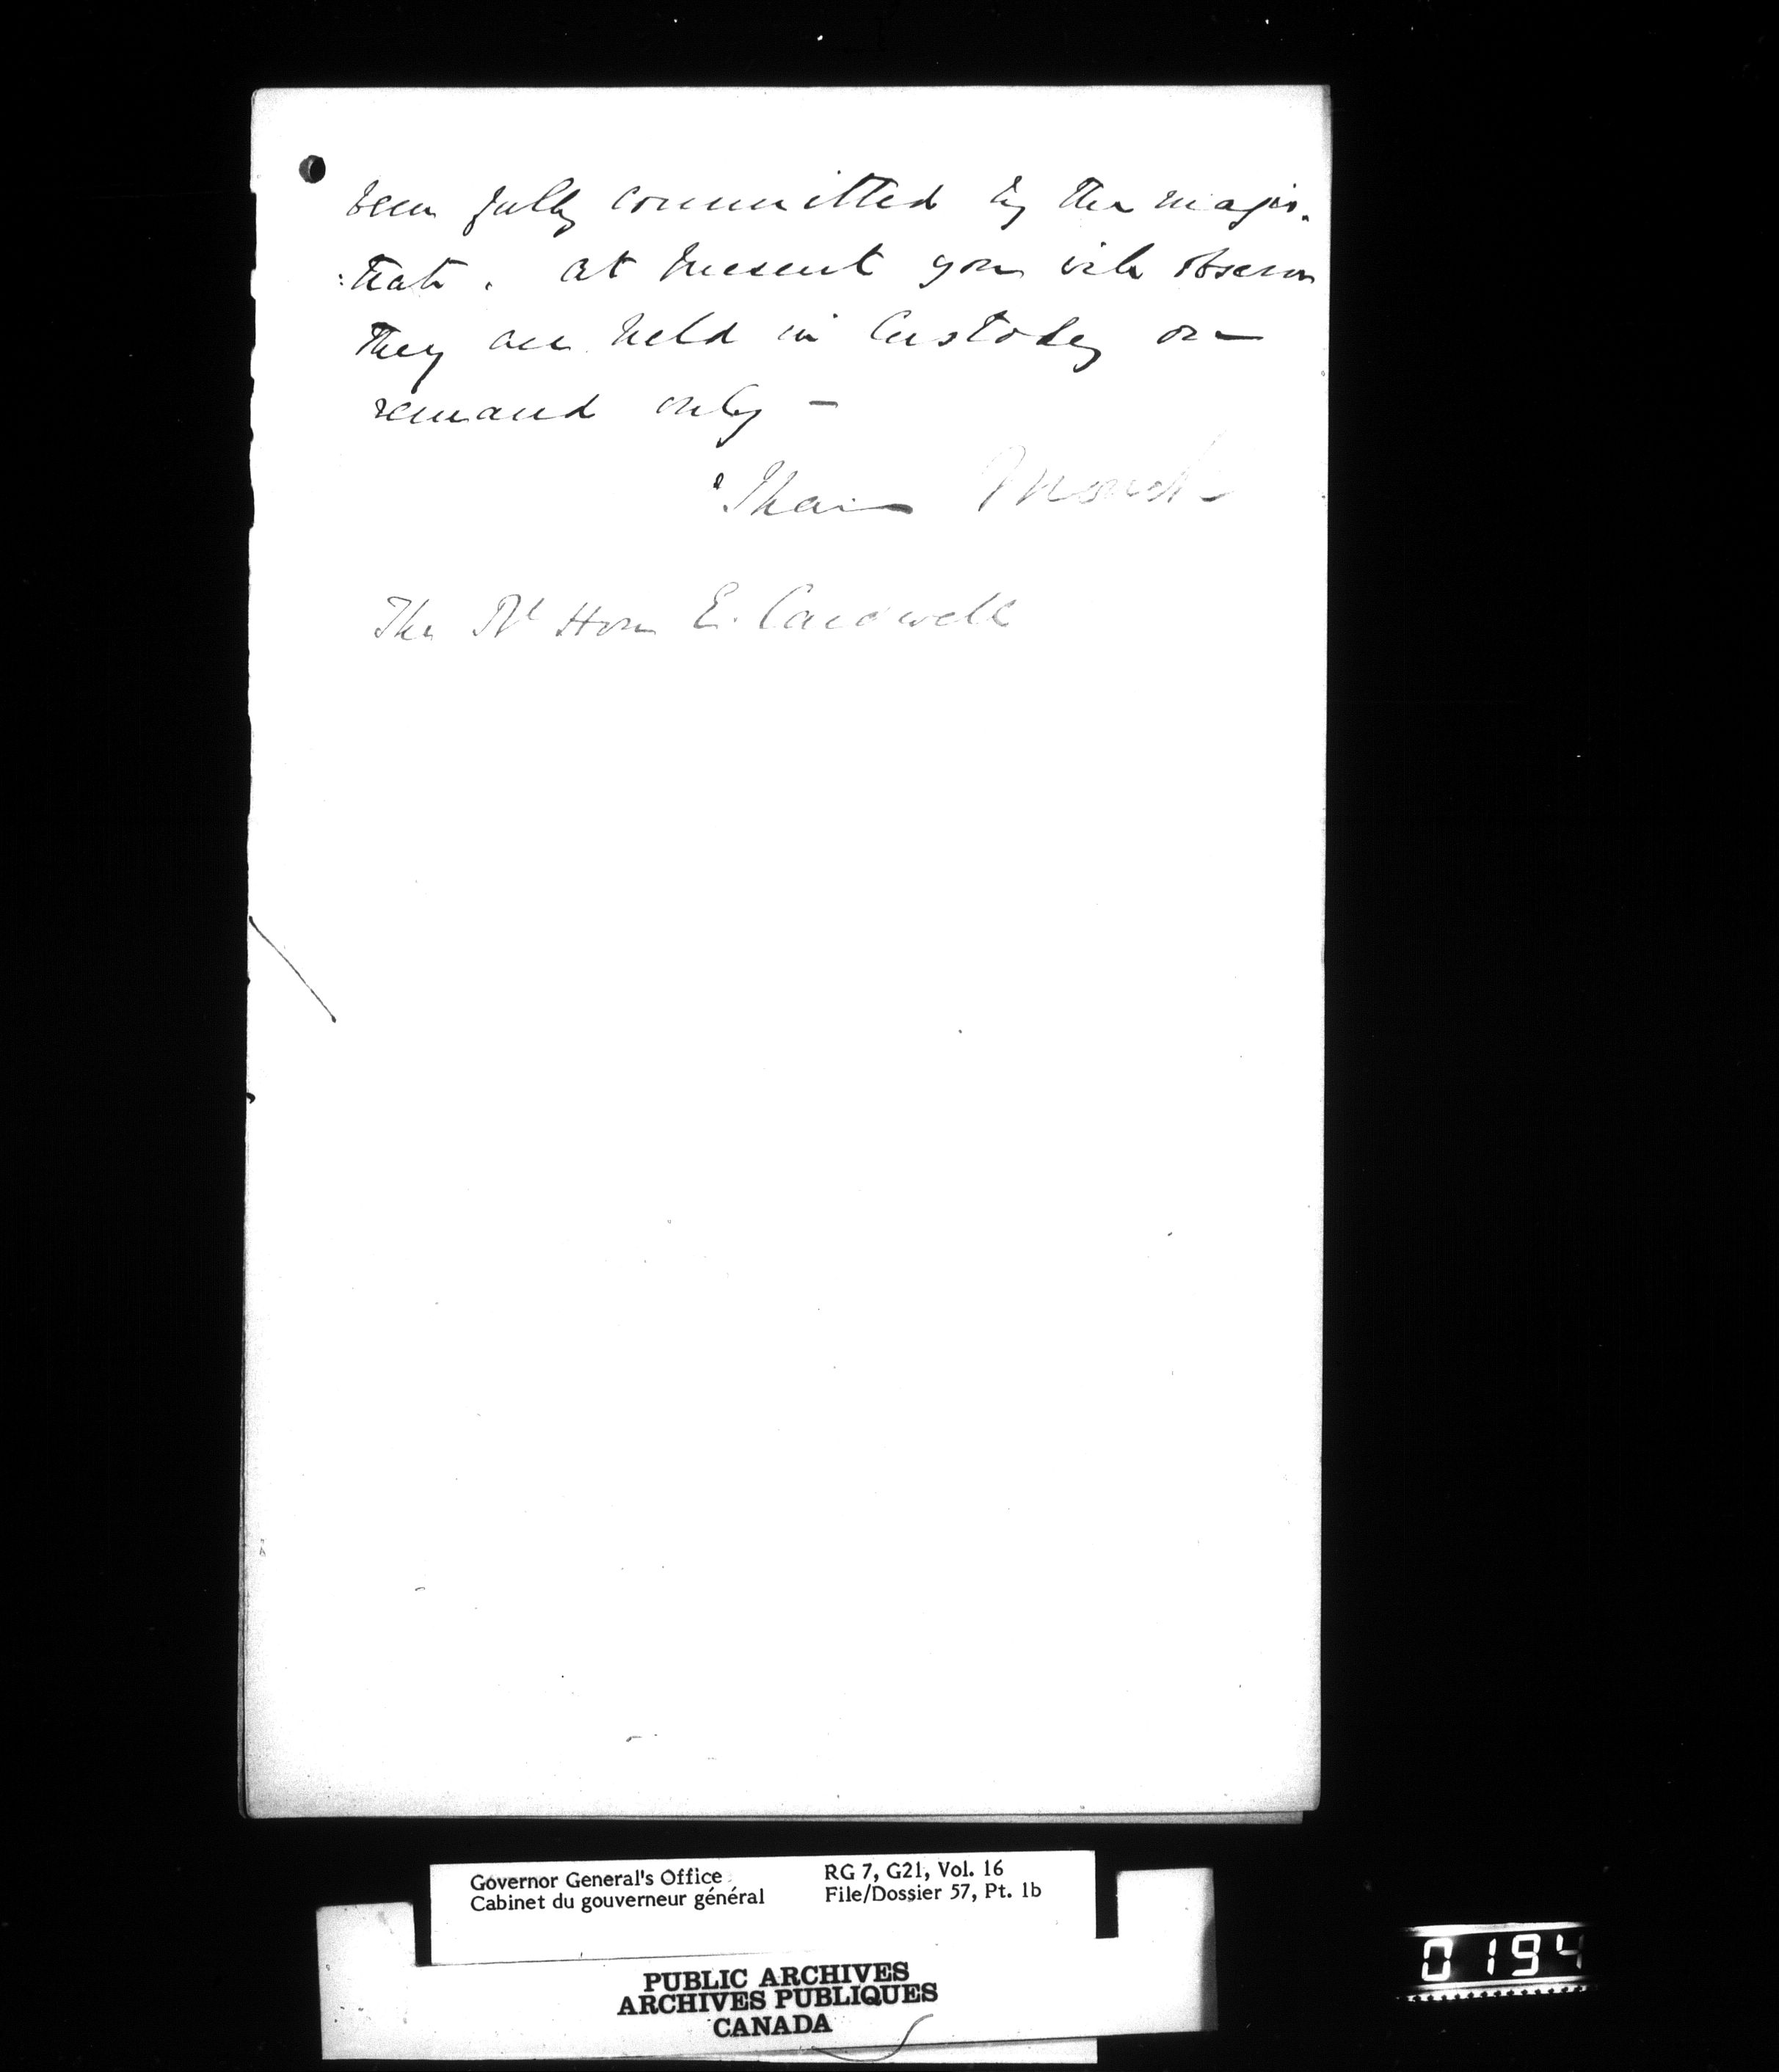 been fully committed by the magis-
:trate. At present you will observe
they are held in Custody on
remand only -
I have
Monck
The Rt Hon E. Cardwell
Governor General's Office
Cabinet du gouverneur général
RG 7, G21, Vol. 16
File/Dossier 57, Pt. 1b
PUBLIC ARCHIVES
ARCHIVES PUBLIQUES
CANADA
0194